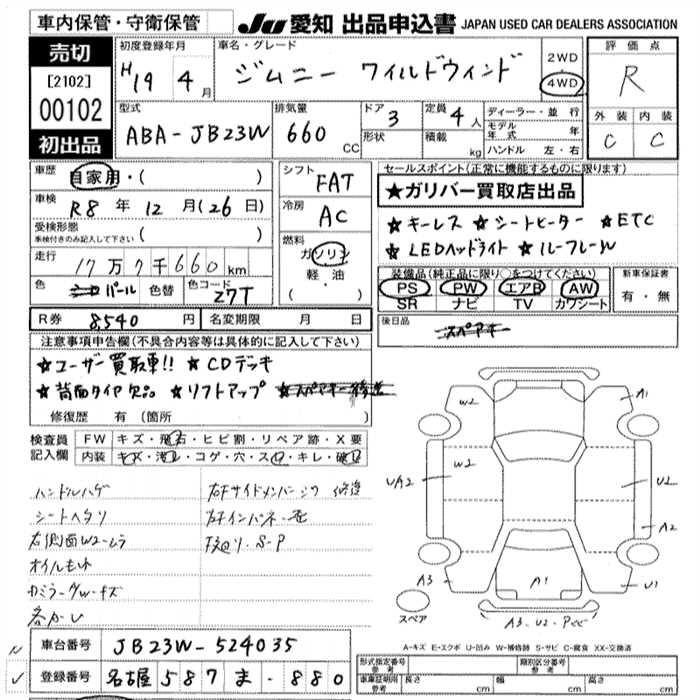 車内保管・守衛保管
JU 愛知 出品申込書 JAPAN USED CAR DEALERS ASSOCIATION
売切
[2102]
00102
初出品
初度登録年月
H19 4月
車名・グレード
ジムニー ワイルドウィンド
2WD
4WD
評価点
R
外装 内装
C C
型式
ABA-JB23W
排気量
660 CC
ドア 3
形状
定員 4人
積載 kg
ディーラー・並行
モデル年式 年
ハンドル 左・右
車歴 自家用・( )
車検 R8年12月(26日)
受検形態
車検付きのみ記入して下さい ( )
走行 17万7千660km
色 パール 色替 色コード Z7T
シフト FAT
冷房 AC
燃料
ガソリン
軽・油
(・)
R券 8,540円 名変期限 月 日
セールスポイント(正常に機能するものに限ります)
★ガリバー買取店出品
★キーレス ★シートヒーター ★ETC
★LEDヘッドライト ★ルーフレール
装備品(純正品に限り○をつけてください)
PS PW エアB AW
SR ナビ TV カワシート
新車保証書
有・無
後日品 スペアキー
注意事項申告欄(不具合内容等は具体的に記入して下さい)
★ユーザー買取車!! ★CDデッキ
★背面タイヤ欠品 ★リフトアップ
修復歴 有(箇所 )
検査員記入欄
FW キズ・飛石・ヒビ割・リペア跡・X要
内装 キズ・汚れ・コゲ・穴・スレ・キレ・破れ
ハンドルハゲ
シートヘタリ
右側面W2-ムラ
オイルもれ
各サビ
S-P
W2
A1
W2
UA2
U2
A2
A3
A1
U1
スペア
A3・U2・Pヒビ
A-キズ E-エクボ U-凹み W-補修跡 S-サビ C-腐食 XX-交換済
車台番号 JB23W-524035
登録番号 名古屋 587 ま・880
形式指定番号 参考
類別区分番号 参考
車庫証明用 参考 長さ cm 幅 cm 高さ cm